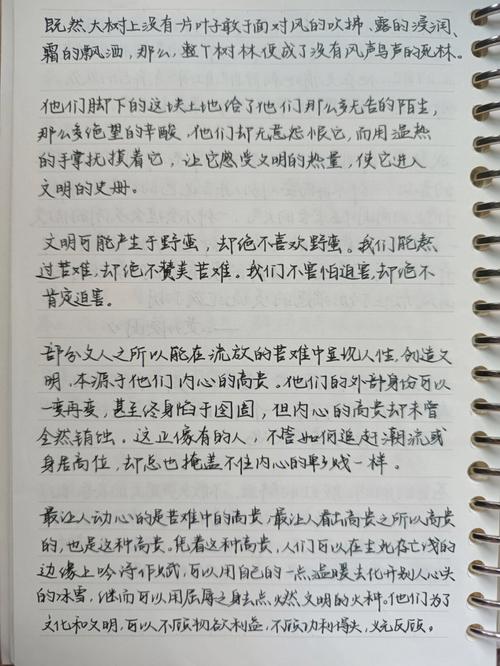 既然大树上没有一片叶子敢于面对风的吹拂、露的浸润、
霜的飘洒,那么,整个树林便成了没有风声鸟声的死林。
他们脚下的这块土地给了他们那么多无告的陌生,
那么多绝望的辛酸,他们却无意怨恨它,而用温热
的手掌抚摸着它,让它感受文明的热量,使它进入
文明的史册。
文明可能产生于野蛮,却绝不喜欢野蛮。我们能熬
过苦难,却绝不赞美苦难。我们不害怕迫害,却绝不
肯定迫害。
部分文人之所以能在流放的苦难中显现人性,创造文
明,本源于他们内心的高贵。他们的外部身份可以
一变再变,甚至终身陷于囹圄,但内心的高贵却未曾
全然销蚀。这正像有的人,不管如何追赶潮流或
身居高位,却总也掩盖不住内心的卑贱一样。
最让人动心的是苦难中的高贵,最让人看出高贵之所以高贵
的,也是这种高贵。凭着这种高贵,人们可以在生死存亡线的
边缘上吟诗作赋,可以用自己的一点温暖去化开别人心头
的冰雪,继而可以用屈辱之身去点燃文明的火种。他们为了
文化和文明,可以不顾物欲利益,不顾功利得失,义无反顾。